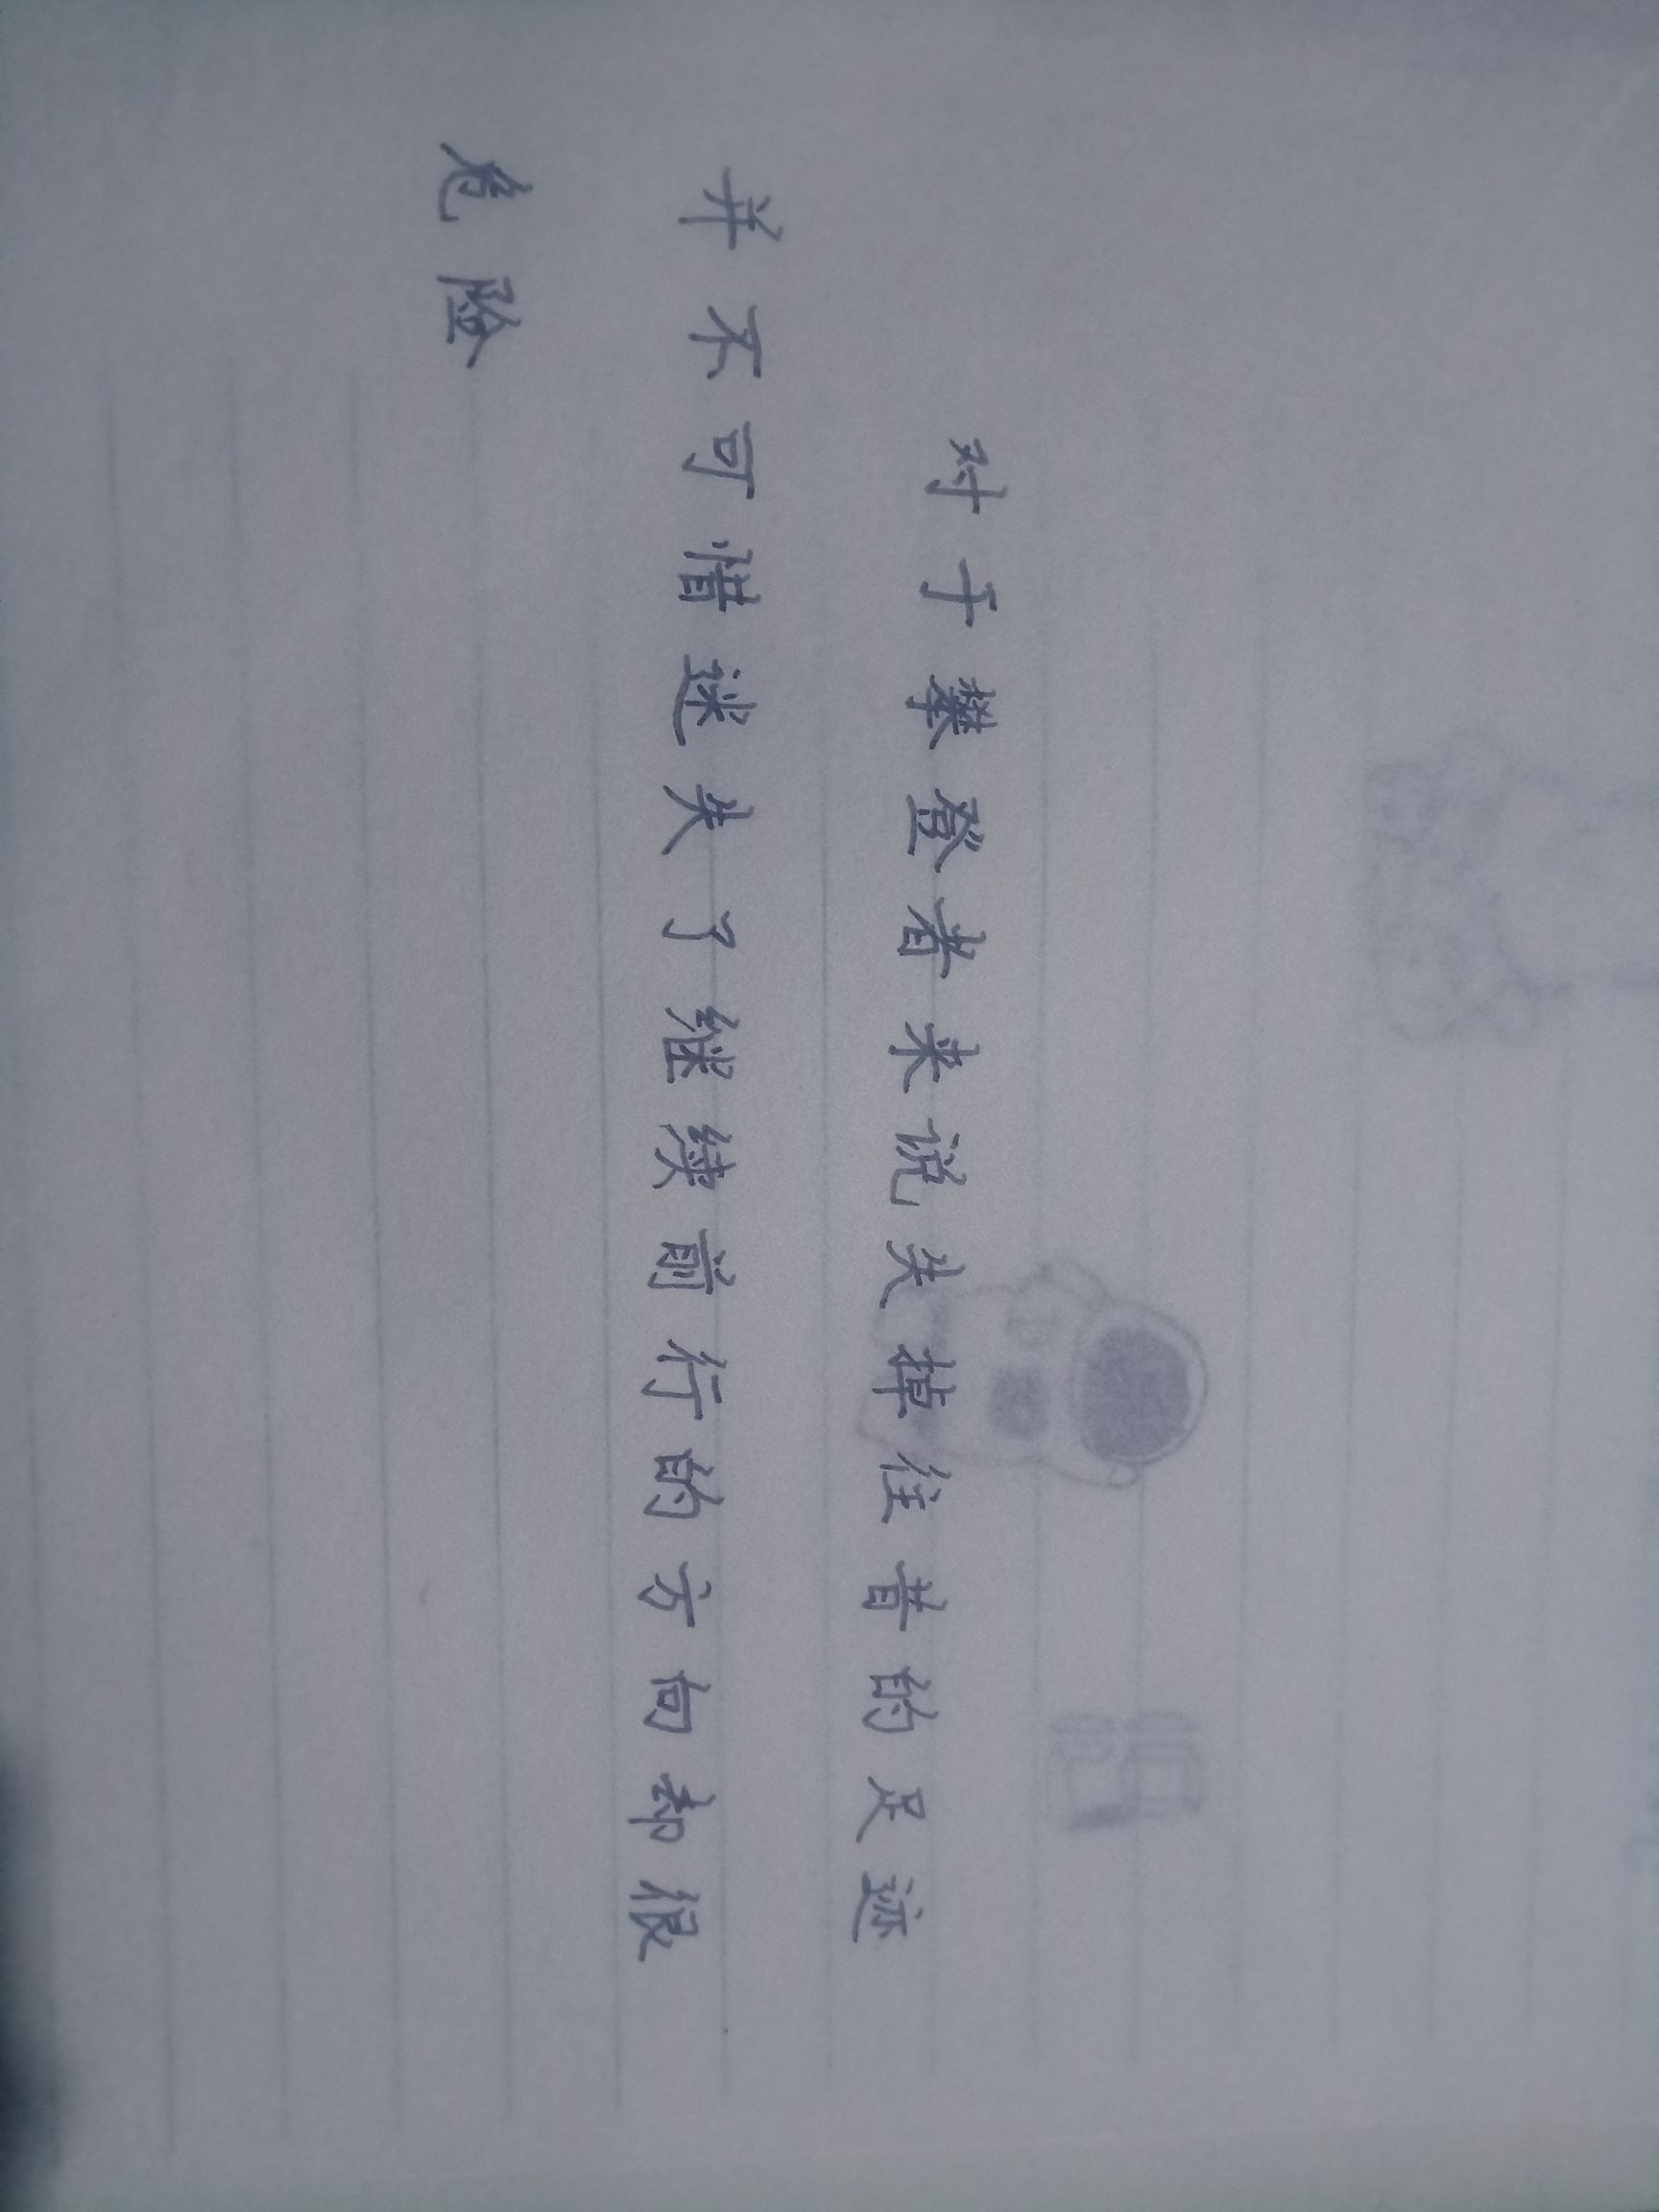 对于攀登者来说失掉往昔的足迹
并不可惜迷失了继续前行的方向却很
危险